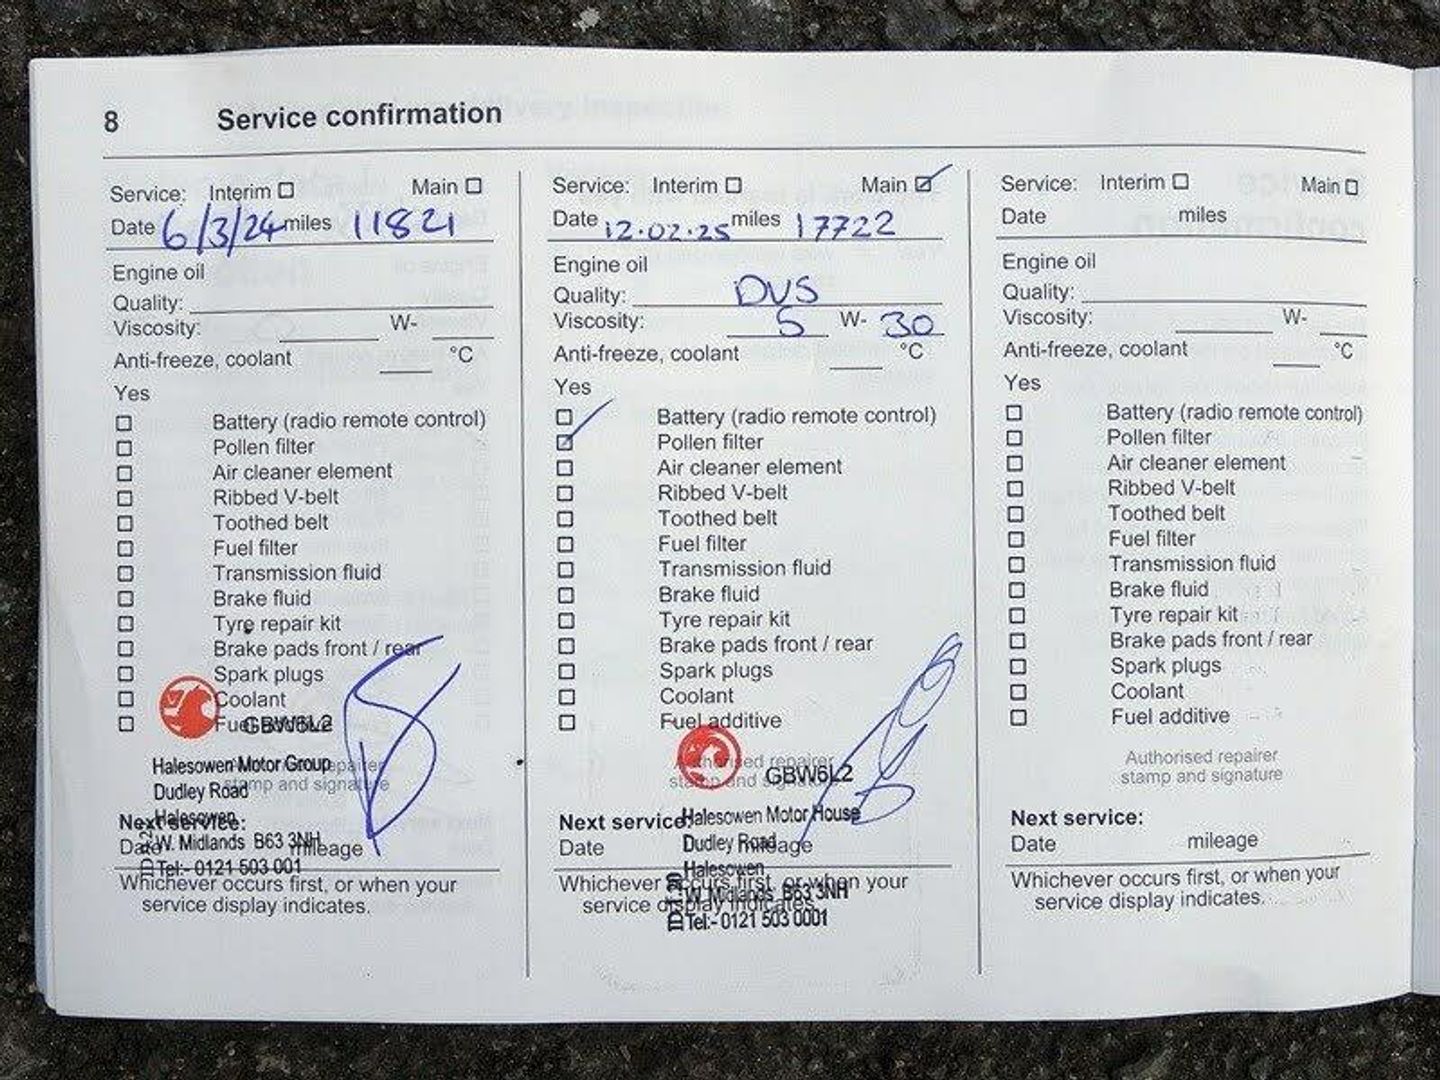 8 Service confirmation
Service: Interim ☐ Main ☐
Date 6/3/24 miles 11821
Engine oil
Quality:
Viscosity: W-
Anti-freeze, coolant °C
Yes
☐ Battery (radio remote control)
☐ Pollen filter
☐ Air cleaner element
☐ Ribbed V-belt
☐ Toothed belt
☐ Fuel filter
☐ Transmission fluid
☐ Brake fluid
☐ Tyre repair kit
☐ Brake pads front / rear
☐ Spark plugs
☐ Coolant
☐ Fuel
GBW6L2
Halesowen Motor Group
stamp and signature
Dudley Road
Halesowen
W. Midlands B63 3NH
Tel:- 0121 503 001
Next service:
Date mileage
Whichever occurs first, or when your
service display indicates.
Service: Interim ☐ Main ☑
Date 12.02.25 miles 17722
Engine oil
Quality: DVS
Viscosity: 5 W- 30
Anti-freeze, coolant °C
Yes
☐ Battery (radio remote control)
☑ Pollen filter
☐ Air cleaner element
☐ Ribbed V-belt
☐ Toothed belt
☐ Fuel filter
☐ Transmission fluid
☐ Brake fluid
☐ Tyre repair kit
☐ Brake pads front / rear
☐ Spark plugs
☐ Coolant
☐ Fuel additive
Authorised repairer
stamp and signature
GBW6L2
Halesowen Motor House
Dudley Road
Halesowen
W. Midlands B63 3NH
Tel:- 0121 503 0001
Next service:
Date mileage
Whichever occurs first, or when your
service display indicates.
Service: Interim ☐ Main ☐
Date miles
Engine oil
Quality:
Viscosity: W-
Anti-freeze, coolant °C
Yes
☐ Battery (radio remote control)
☐ Pollen filter
☐ Air cleaner element
☐ Ribbed V-belt
☐ Toothed belt
☐ Fuel filter
☐ Transmission fluid
☐ Brake fluid
☐ Tyre repair kit
☐ Brake pads front / rear
☐ Spark plugs
☐ Coolant
☐ Fuel additive
Authorised repairer
stamp and signature
Next service:
Date mileage
Whichever occurs first, or when your
service display indicates.